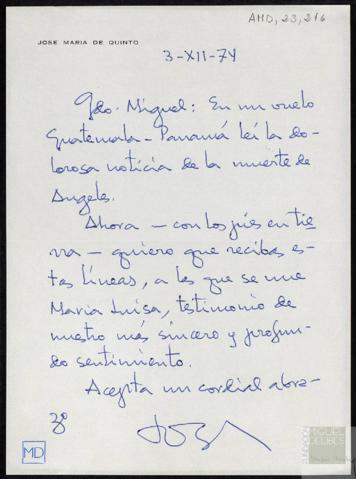 AMD, 23, 216
JOSE MARIA DE QUINTO
3-XII-74
Qdo. Miguel: En un vuelo
Guatemala - Panamá leí la do-
lorosa noticia de la muerte de
Angeles.
Ahora - con los piés en tie-
rra - quiero que recibas es-
tas líneas, a las que se une
María Luisa, testimonio de
nuestro más sincero y profun-
do sentimiento.
Acepta un cordial abra-
zo
MD
FUNDACIÓN
MIGUEL
DELIBES